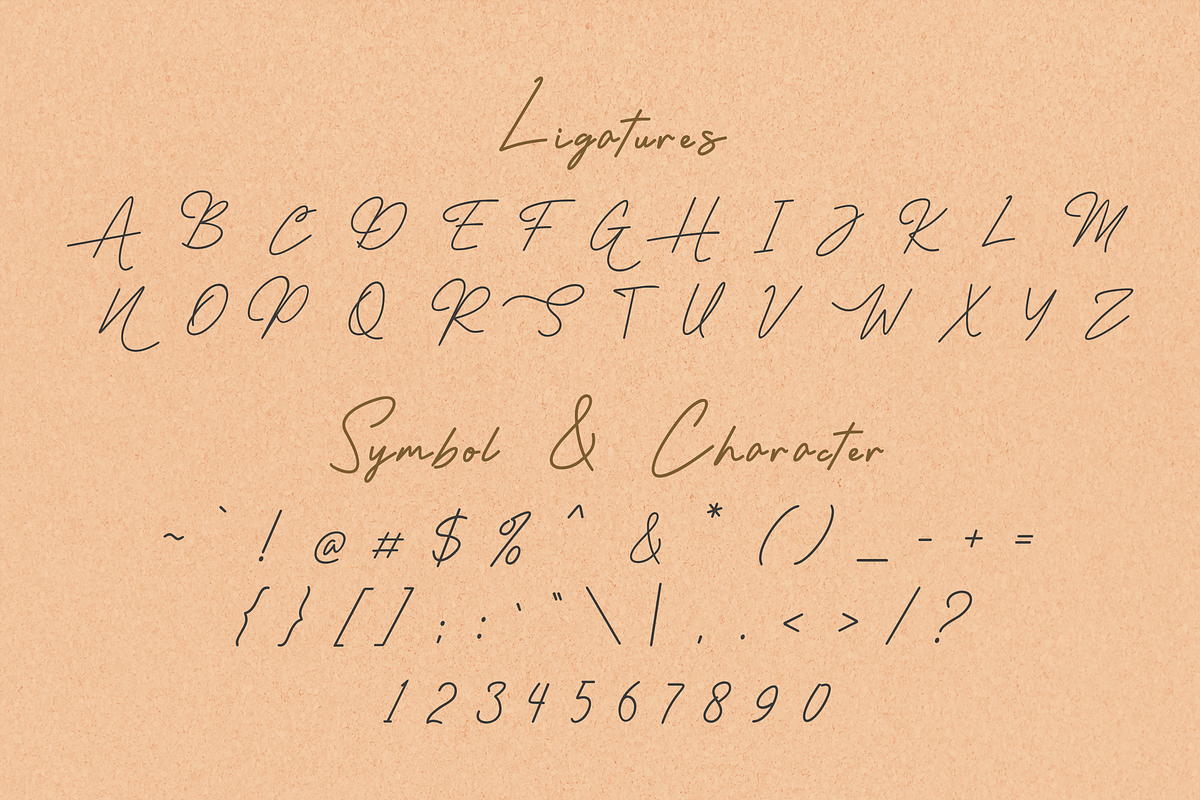 Ligatures
A B C D E F G H I J K L M
N O P Q R S T U V W X Y Z
Symbol & Character
~ ` ! @ # $ % ^ & * ( ) _ - + =
{ } [ ] ; : ' " \ | , . < > / ?
1 2 3 4 5 6 7 8 9 0